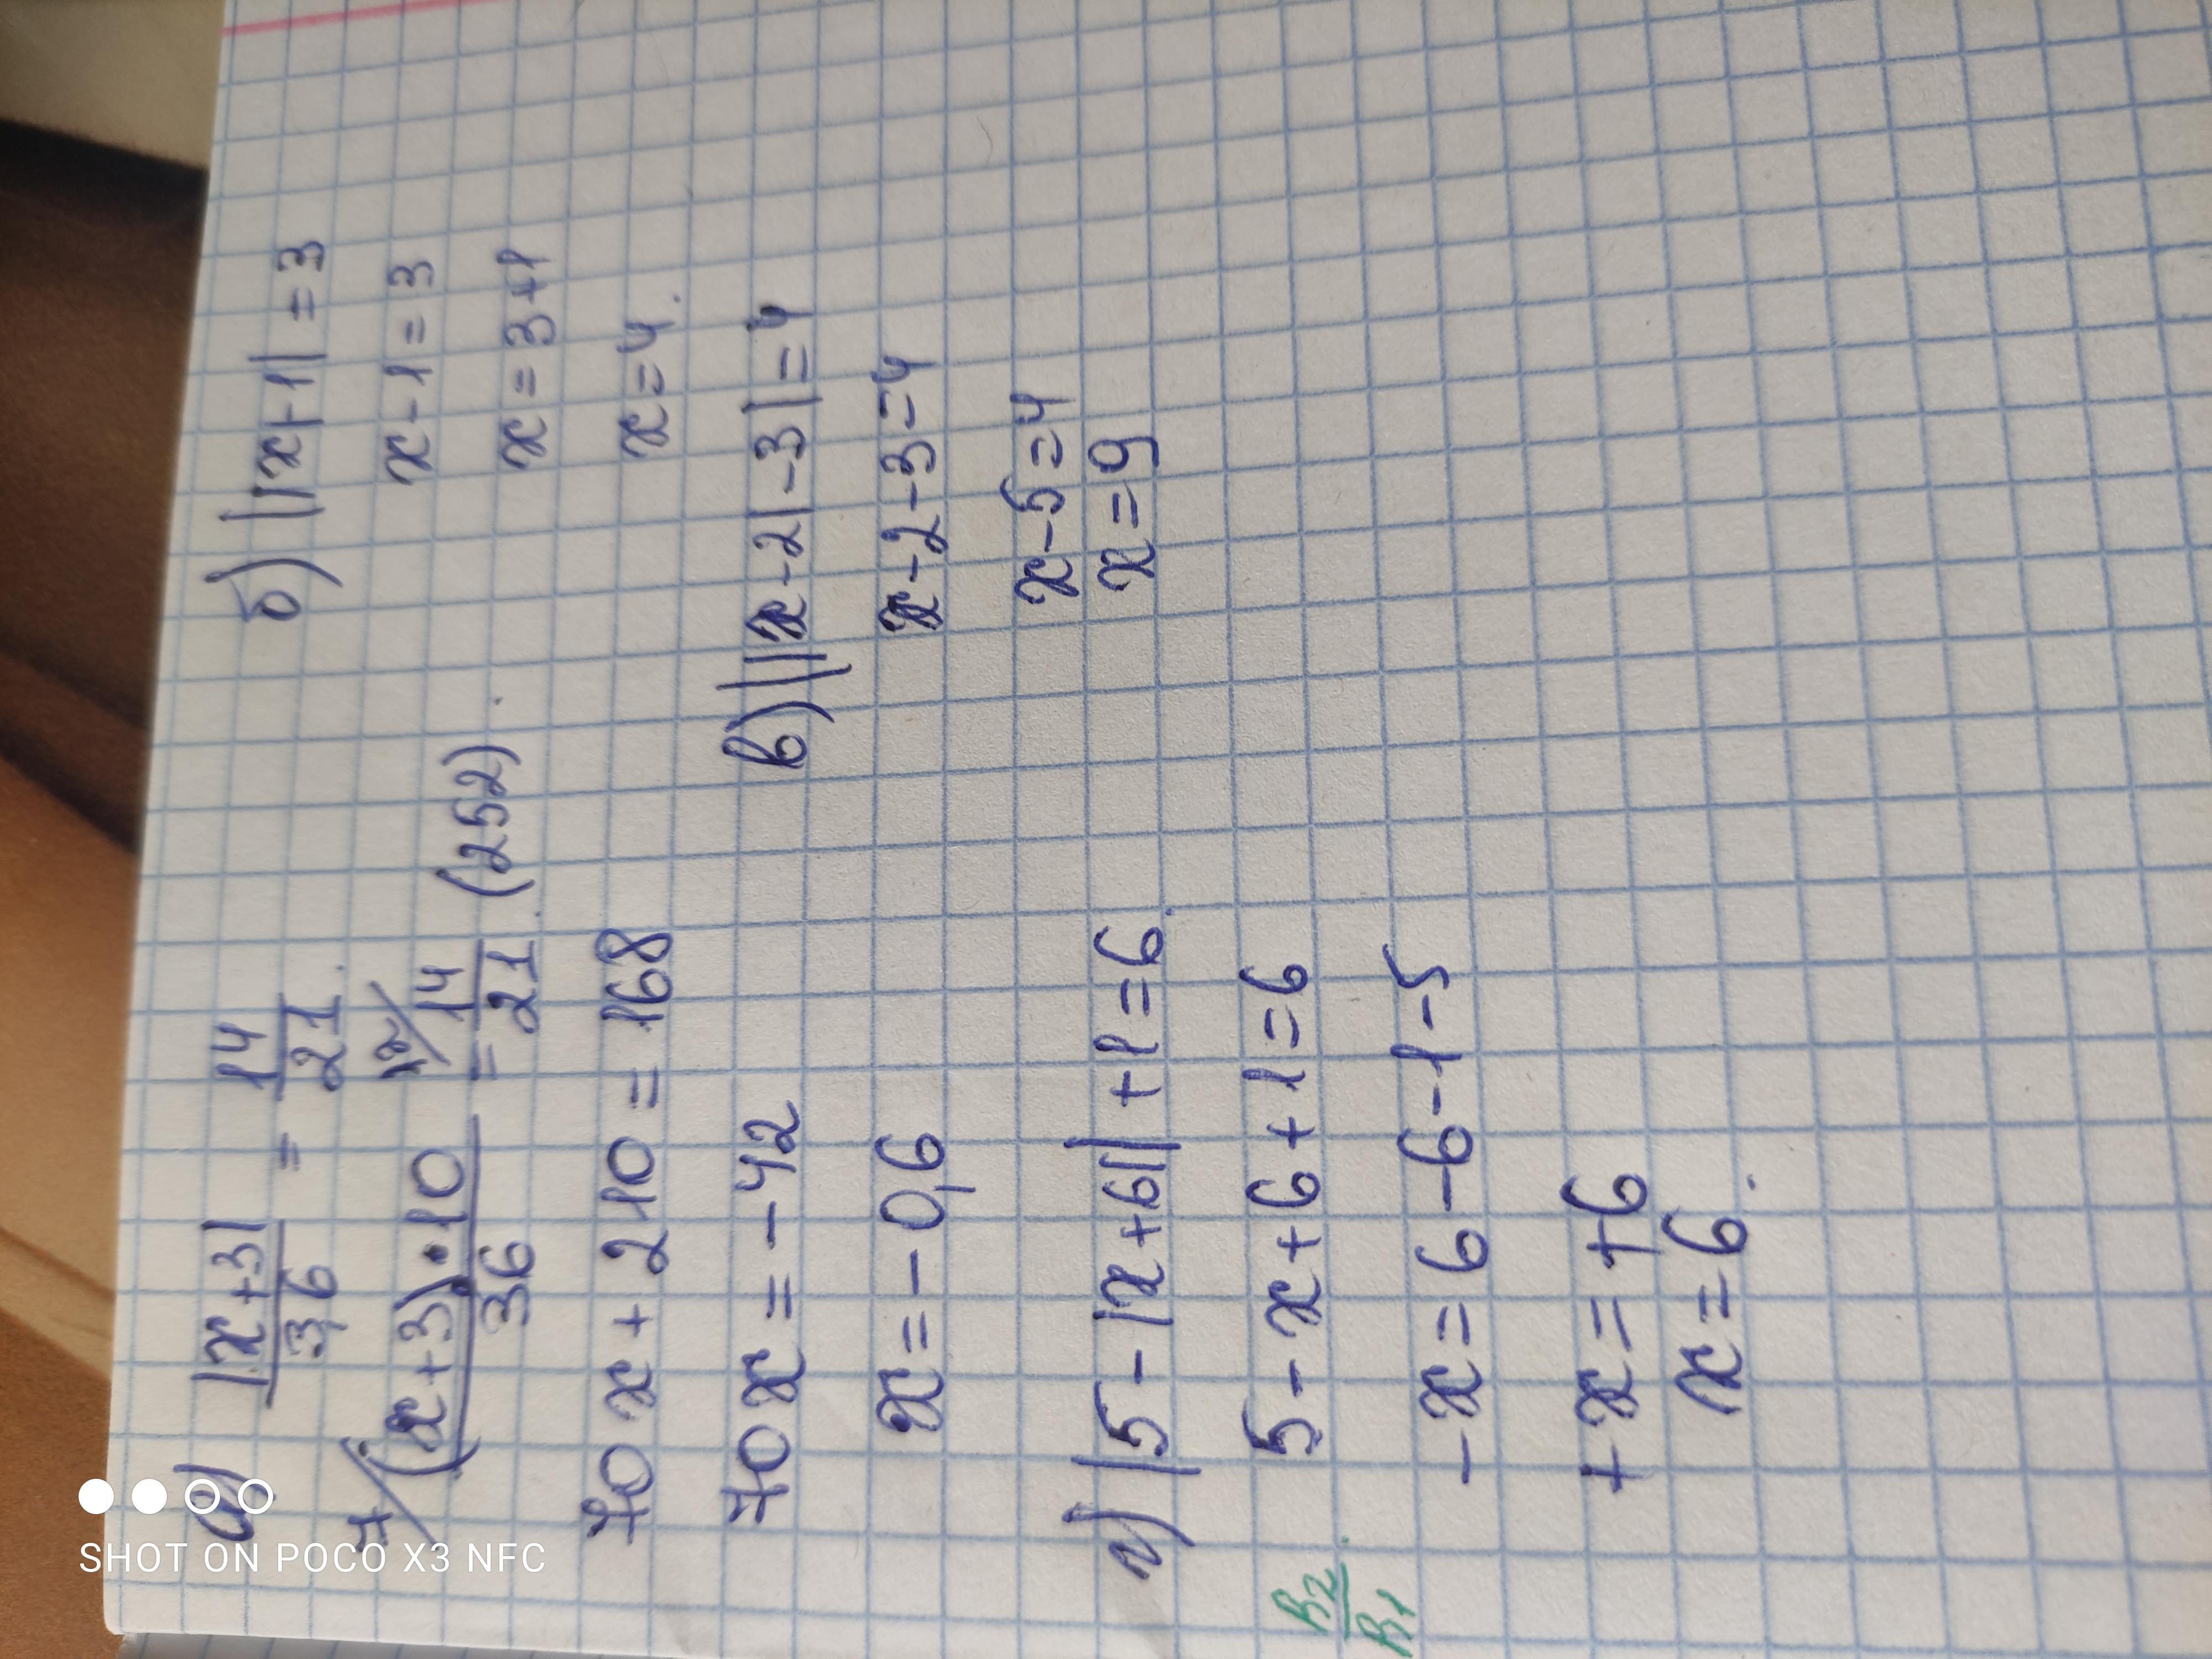 а) |x+3| / 3,6 = 14/21.
7/ (x+3)·10 / 36 = 12/ 14/21. (252)
70x + 210 = 168
70x = -42
x = -0,6
б) ||x|-1| = 3
x-1=3
x=3+1
x=4.
в) ||x-2|-3|=4
x-2-3=4
x-5=4
x=9
г) |5-|x+6||+1=6.
5-x+6+1=6
-x=6-6-1-5
+x=+6
x=6.
В2
В1
SHOT ON POCO X3 NFC